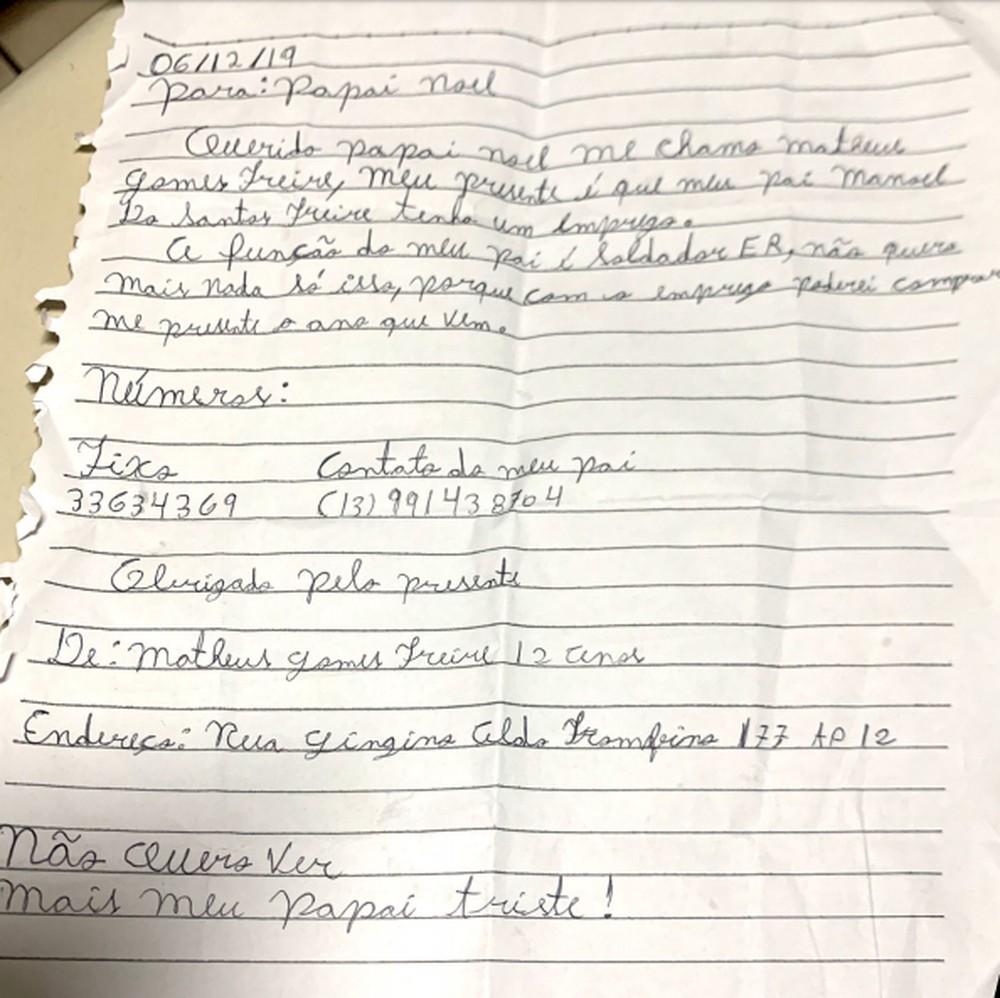 06/12/19
Para: Papai Noel
Querido papai noel me chamo matheus
gomes Freire, meu presente é que meu pai Manoel
Do Santos Freire tenha um emprego.
A função do meu pai é Soldador ER, não quero
mais nada só isso, porque com o emprego poderei comprar
me presente o ano que vem.
Números:
Fixo Contato do meu pai
33634369 (13) 991438704
Obrigado pelo presente
De: Matheus gomes Freire 12 anos
Endereço: Rua gingino Aldo 177 AP 12
Não Quero Ver
Mais meu papai triste!